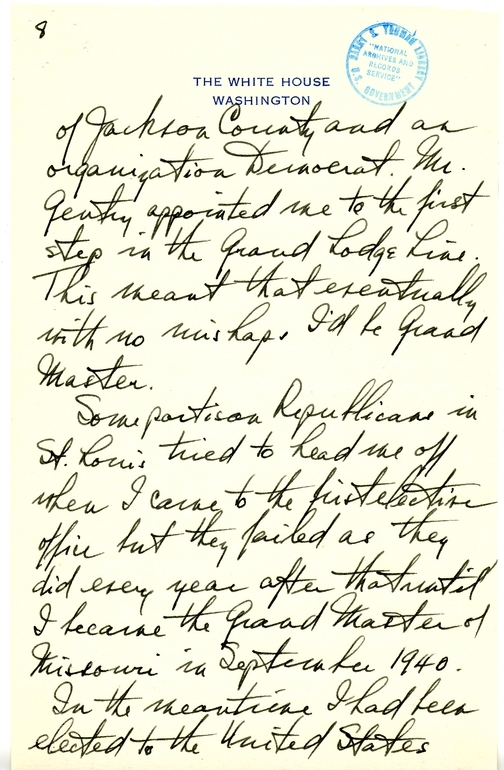 8
HARRY S. TRUMAN LIBRARY
"NATIONAL
ARCHIVES AND
RECORDS
SERVICE"
U.S. GOVERNMENT
THE WHITE HOUSE
WASHINGTON
of Jackson County and an
organization Democrat. Mr.
Gentry appointed me to the first
step in the Grand Lodge Line.
This meant that eventually
with no mishaps I'd be Grand
Master.
Some partison Republicans in
St. Louis tried to head me off
when I came to the first elective
office but they failed as they
did every year after that until
I became the Grand Master of
Missouri in September 1940.
In the meantime I had been
elected to the United States